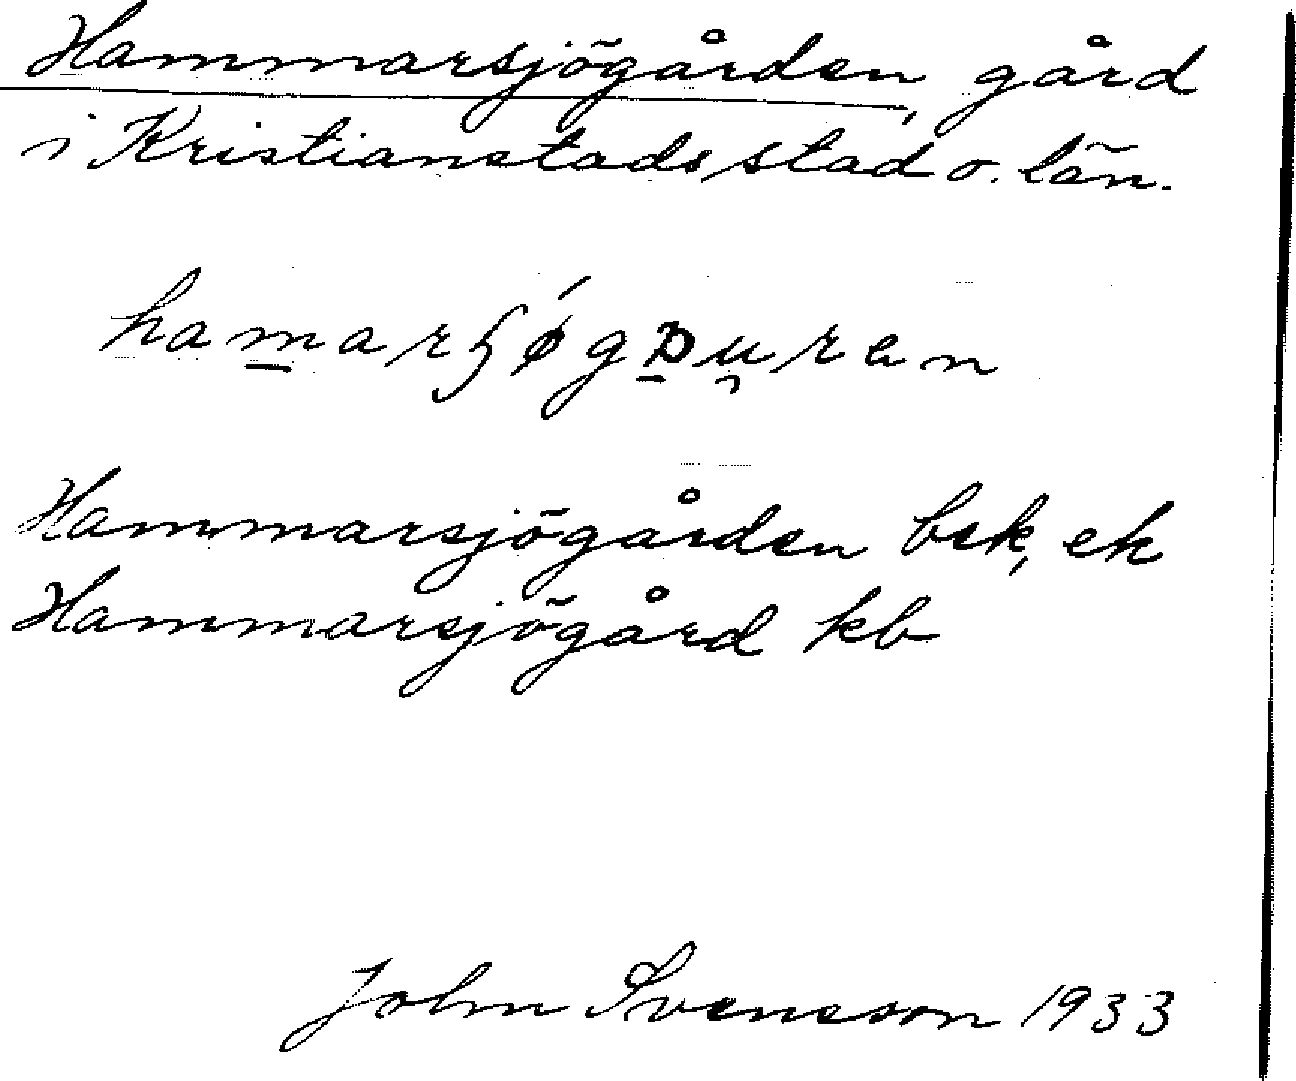 Hammarsjögården, gård
i Kristianstads stad o. län.
Hammarsjögården bsk, ek
Hammarsjögård kb
John Svensson 1933